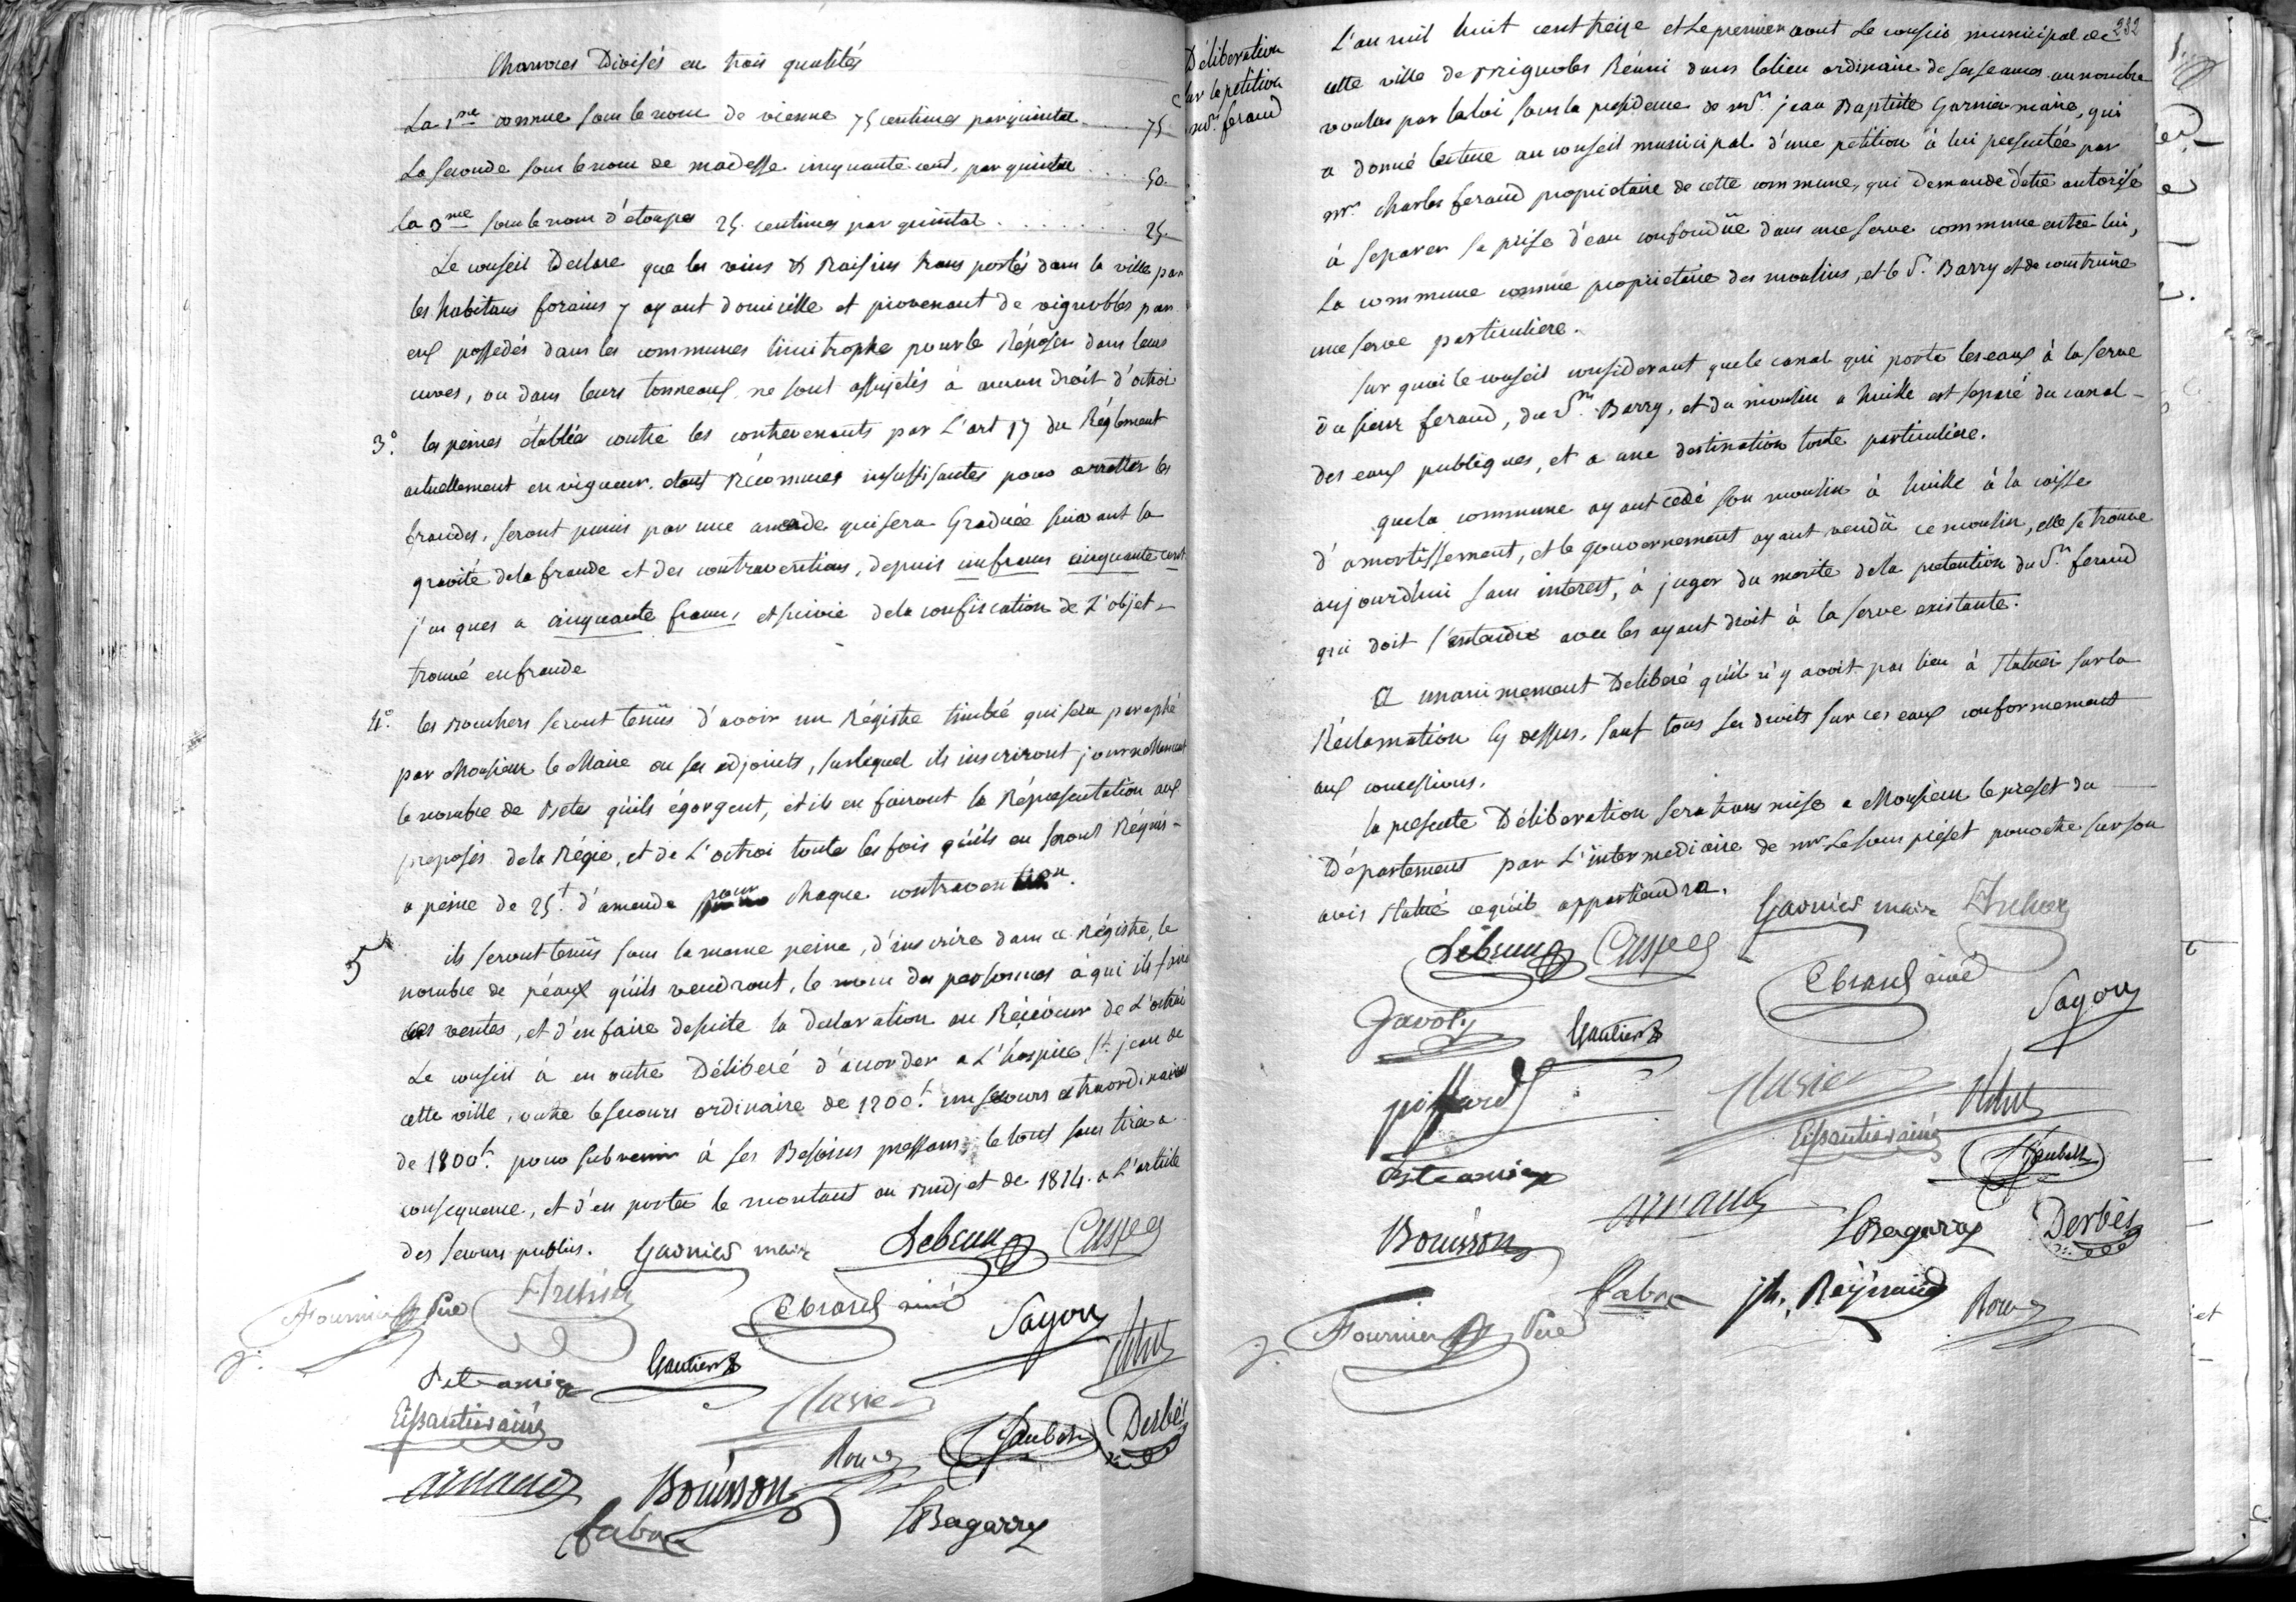 Chanvres Divisés en trois qualités
La 1re connue sous le nom de vienne 75 centimes par quintal .... 75
La seconde sous le nom de madesse cinquante cent. par quintal .... 50.
la 3me sous le nom d'etoupes 25 centimes par quintal ........ 25
Le conseil Declare que les vins & Raisins transportés dans la ville par
les habitans forains y ayant domicille et provenant de vignobles par
eux possedés dans les communes limitrophes pour le Réposer dans leurs
cuves, ou dans leurs tonneaux ne sont assujetis à aucun droit d'octroi
3° les peines établies contre les contrevenants par L'art 17 du Réglement
actuellement en vigueur. étant Réconnues insuffisantes pour arretter les
fraudes, seront punis par une amende qui sera Graduée suivant la
gravité de la fraude et des contraventions, depuis un franc cinquante cent
jusques a cinquante francs, et suivie de la confiscation de L'objet
trouvé en fraude
4° les Bouchers seront tenüs d'avoir un Régistre timbré qui sera paraphé
par Monsieur le Maire ou ses adjoints, sur lequel ils inscriront journellement
le nombre de Betes qu'ils égorgent, et ils en fairont la Réprésentation aux
preposés de la Régie, et de L'octroi toutes les fois qu'ils en seront Réquis
a peine de 25f. d'amende pour chaque contravention.
5 ils seront tenüs sous la meme peine, d'inscrire dans ce Régistre, le
nombre de péaux qu'ils vendront, le nom des personnes à qui ils faire
ces ventes, et d'en faire desuite la declaration au Réçeveur de L'octroi
Le conseil à en outre Délibéré d'accorder a L'hospice St. jean de
cette ville, outre le secours ordinaire de 1200f. un secours extraordinaire
de 1800f. pour subvenir à ses Besoins pressans, le tout sans tirer a
consequence, et d'en porter le montant au Budjet de 1814. a L'article
des secours publics. Garnier maire Lebrun Crispe
Fournier Pere Ebrard ainé Sayou
Gautier
Eissautier ainé Jaubert Derbès
arnaud Bouisson Roux
fabre LBagarry
232
Déliberation
sur la petition
mr. feraud
L'an mil huit cent treize et le premier aout le conseil municipal de
cette ville de Brignoles Réuni dans le lieu ordinaire de ses seances au nombre
voulus par la loi sous la presidence de mr. jean Baptiste Garnier maire, qui
a donné lecture au conseil municipal d'une petition à lui presentée par
mr. charles feraud proprietaire de cette commune, qui demande d'etre autorisé
à separer sa prise d'eau confondüe dans une serve commune entre lui,
La commune comme proprietaire des moulins, et le Sr. Barry et de construire
une serve particuliere.
sur quoi le conseil considerant que le canal qui porte les eaux à la serve
du sieur feraud, du Sr. Barry, et du moulin a huille est separé du canal
des eaux publiques, et a une destination toute particuliere.
que la commune ayant cedé son moulin à huille à la caisse
d'amortissement, et le gouvernement ayant vendü ce moulin, elle se trouve
aujourdhui sans interest, à juger du merite de la pretention du Sr. feraud
qui doit s'entendre avec les ayant droit à la serve existante.
A unanimement Deliberé qu'il n'y avoit pas lieu à statuer sur la
Réclamation cy dessus, sauf tous ses droits sur ces eaux conformement
aux concessions.
la presente Déliberation sera transmise a Monsieur le prefet du
Département par L'intermediaire de mr. Le sous préfet pour etre sur son
avis statué ce qu'il appartiendra. Garnier maire
Lebrun Crispe
Ebrard ainé Sayou
Gavoty Gautier
piffard
Eissautier ainé
Jaubert
Bouisson arnaud LBagarry Derbès
fabre jh. Reÿnaud Roux
Fournier Pere